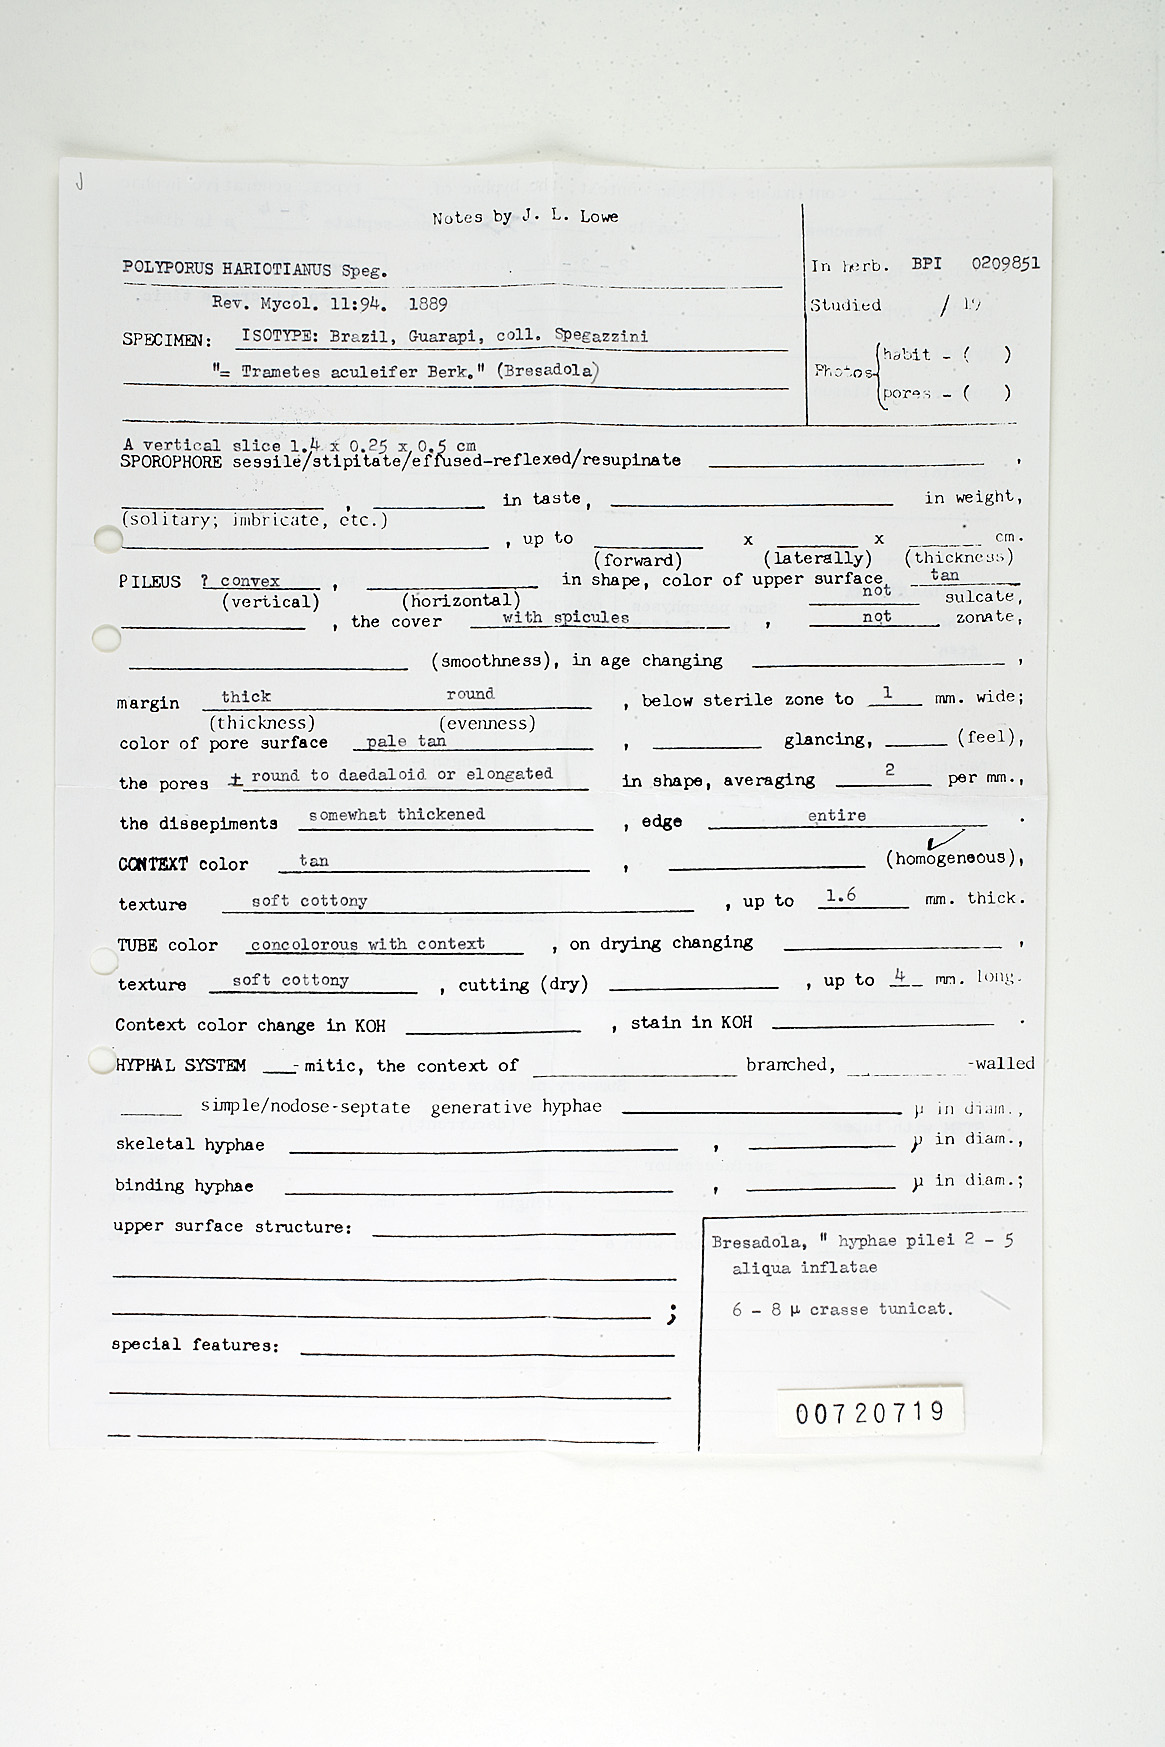 J
Notes by J. L. Lowe
POLYPORUS HARIOTIANUS Speg.
In herb. BPI 0209851
Rev. Mycol. 11:94. 1889
Studied / 19
SPECIMEN: ISOTYPE: Brazil, Guarapi, coll. Spegazzini
"= Trametes aculeifer Berk." (Bresadola)
Photos
habit - ( )
pores - ( )
A vertical slice 1.4 x 0.25 x 0.5 cm
SPOROPHORE sessile/stipitate/effused-reflexed/resupinate ,
, in taste, in weight,
(solitary; imbricate, etc.)
, up to x x cm.
(forward) (laterally) (thickness)
PILEUS ? convex , in shape, color of upper surface tan
(vertical) (horizontal) not sulcate,
, the cover with spicules , not zonate,
(smoothness), in age changing ,
margin thick round , below sterile zone to 1 mm. wide;
(thickness) (evenness)
color of pore surface pale tan , glancing, (feel),
the pores ± round to daedaloid or elongated in shape, averaging 2 per mm.,
the dissepiments somewhat thickened , edge entire .
CONTEXT color tan , (homogeneous), ✓
texture soft cottony , up to 1.6 mm. thick.
TUBE color concolorous with context , on drying changing ,
texture soft cottony , cutting (dry) , up to 4 mm. long.
Context color change in KOH , stain in KOH .
HYPHAL SYSTEM -mitic, the context of branched, -walled
simple/nodose-septate generative hyphae µ in diam.,
skeletal hyphae , µ in diam.,
binding hyphae , µ in diam.;
upper surface structure:
;
special features:
Bresadola, " hyphae pilei 2 - 5
aliqua inflatae
6 - 8 µ crasse tunicat.
00720719